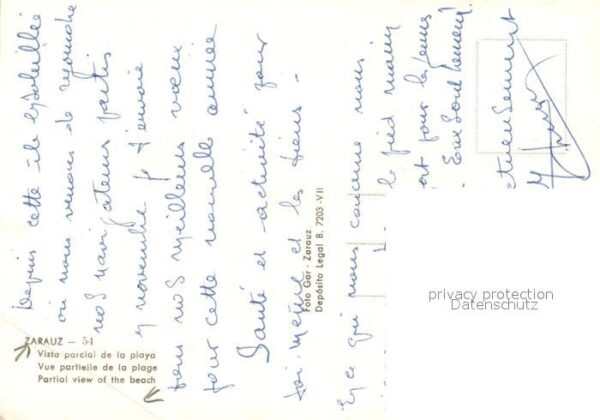 Depuis cette île ensoleillée
où nous venons de rejoindre
nos navigateurs partis
en novembre je t'envoie
tous nos meilleurs vœux
pour cette nouvelle année
Santé et activité pour
toi-même et les tiens.
En ce qui nous concerne nous
le pied marin
est pour les jeunes
Foto Gar - Zarauz
Depósito Legal B. 7203-VII
ZARAUZ — 54
Vista parcial de la playa
Vue partielle de la plage
Partial view of the beach
privacy protection
Datenschutz